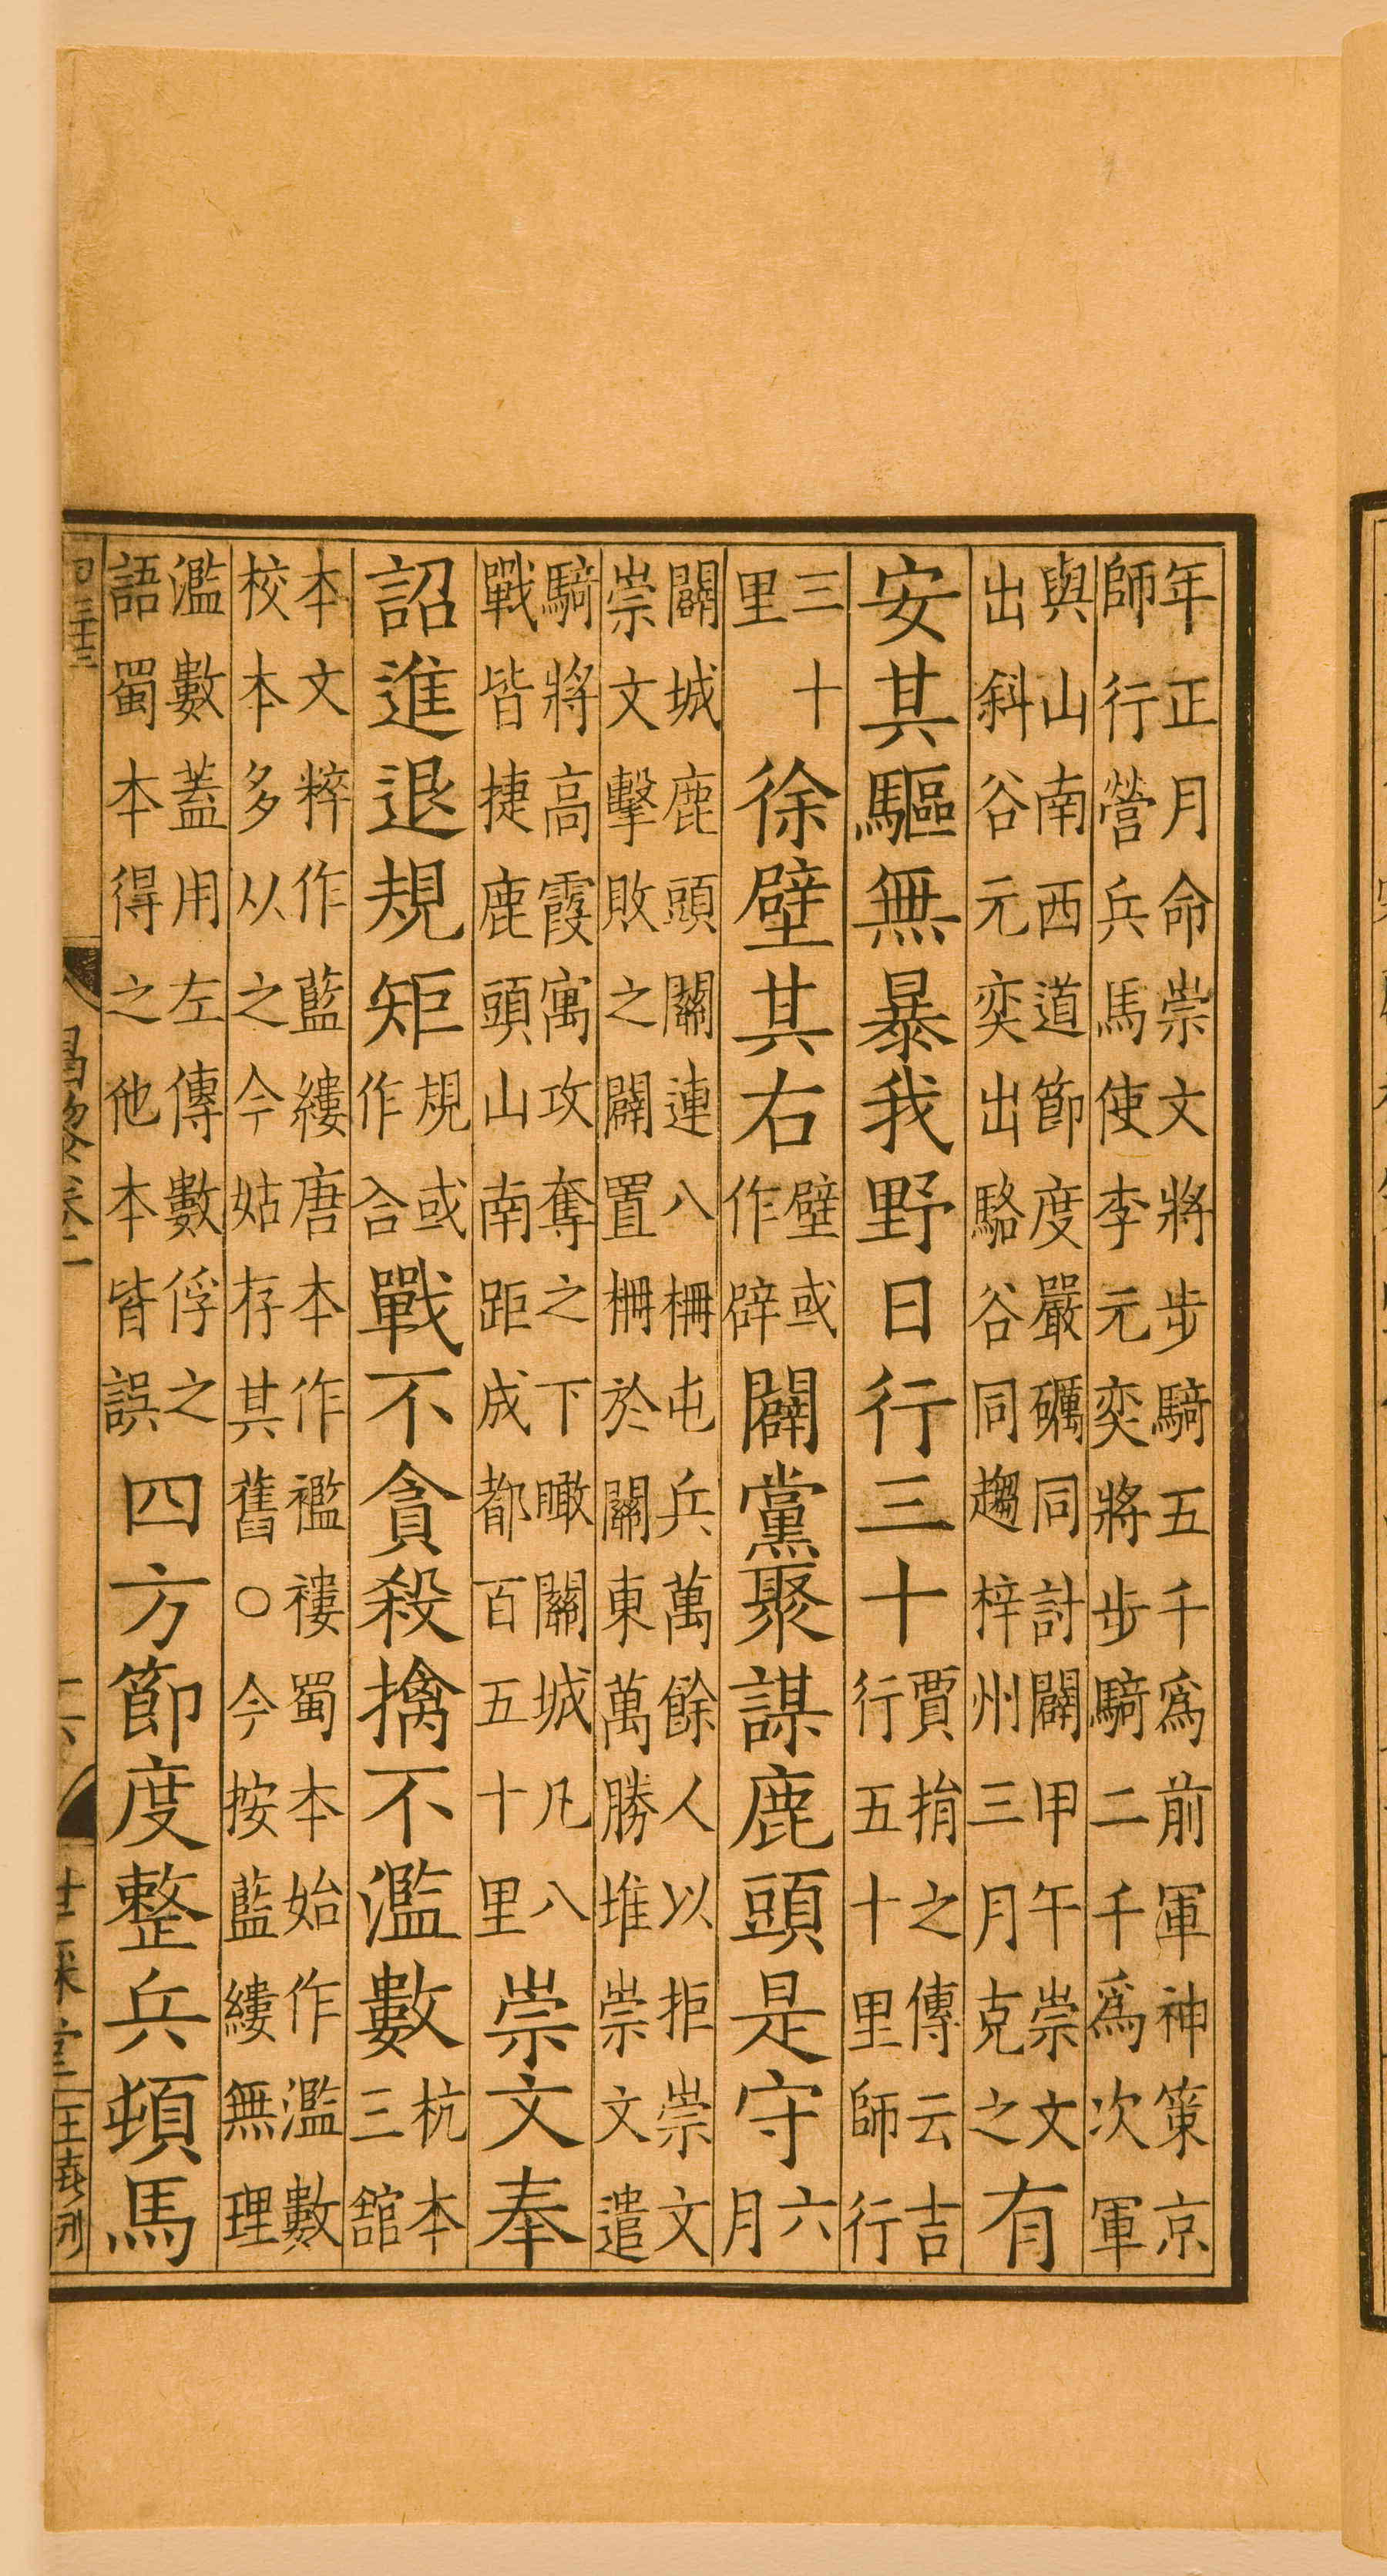 年正月命崇文將步騎五千爲前軍神策京
師行營兵馬使李元奕將步騎二千爲次軍
與山南西道節度嚴礪同討闢甲午崇文
出斜谷元奕出駱谷同趨梓州三月克之有
安其驅無暴我野日行三十賈捐之傳云吉行五十里師行
三十里徐壁其右壁或作辟闢黨聚謀鹿頭是守六月
闢城鹿頭關連八柵屯兵萬餘人以拒崇文
崇文擊敗之闢置柵於關東萬勝堆崇文遣
騎將高霞寓攻奪之下瞰關城凡八
戰皆捷鹿頭山南距成都百五十里崇文奉
詔進退規矩規或作合戰不貪殺擒不濫數杭本三舘
本文粹作藍縷唐本作襤褸蜀本始作濫數
校本多从之今姑存其舊○今按藍縷無理
濫數蓋用左傳數俘之
語蜀本得之他本皆誤四方節度整兵頓馬